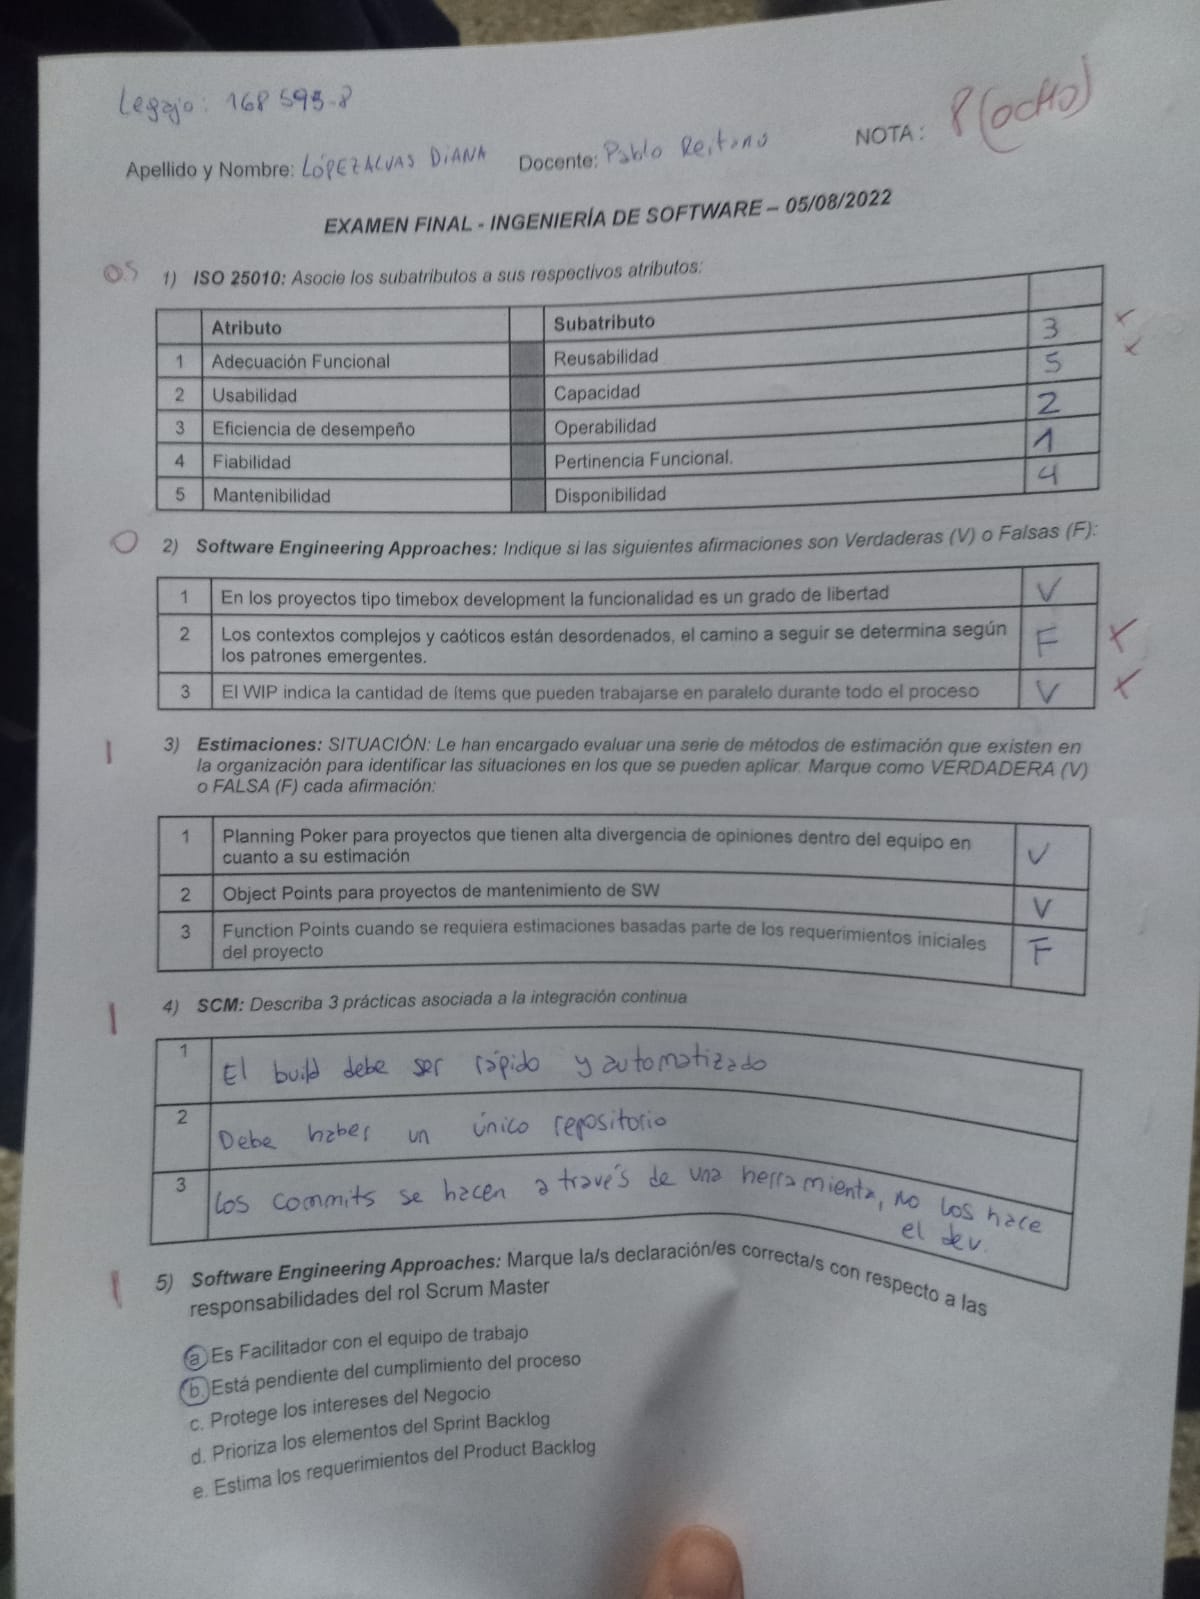 Legajo: 168 595-8
NOTA: 8 (ocho)
Apellido y Nombre: LÓPEZ ALVAS DIANA Docente: Pablo Reitano
EXAMEN FINAL - INGENIERÍA DE SOFTWARE – 05/08/2022
0.5 1) ISO 25010: Asocie los subatributos a sus respectivos atributos:
Atributo Subatributo
1 Adecuación Funcional Reusabilidad 3 x
2 Usabilidad Capacidad 5 x
3 Eficiencia de desempeño Operabilidad 2
4 Fiabilidad Pertinencia Funcional. 1
5 Mantenibilidad Disponibilidad 4
0 2) Software Engineering Approaches: Indique si las siguientes afirmaciones son Verdaderas (V) o Falsas (F):
1 En los proyectos tipo timebox development la funcionalidad es un grado de libertad V
2 Los contextos complejos y caóticos están desordenados, el camino a seguir se determina según F x
los patrones emergentes.
3 El WIP indica la cantidad de ítems que pueden trabajarse en paralelo durante todo el proceso V x
1 3) Estimaciones: SITUACIÓN: Le han encargado evaluar una serie de métodos de estimación que existen en
la organización para identificar las situaciones en los que se pueden aplicar. Marque como VERDADERA (V)
o FALSA (F) cada afirmación:
1 Planning Poker para proyectos que tienen alta divergencia de opiniones dentro del equipo en V
cuanto a su estimación
2 Object Points para proyectos de mantenimiento de SW V
3 Function Points cuando se requiera estimaciones basadas parte de los requerimientos iniciales F
del proyecto
1 4) SCM: Describa 3 prácticas asociada a la integración continua
1 El build debe ser rápido y automatizado
2 Debe haber un único repositorio
3 Los commits se hacen a través de una herramienta, no los hace
el dev.
1 5) Software Engineering Approaches: Marque la/s declaración/es correcta/s con respecto a las
responsabilidades del rol Scrum Master
a. Es Facilitador con el equipo de trabajo
b. Está pendiente del cumplimiento del proceso
c. Protege los intereses del Negocio
d. Prioriza los elementos del Sprint Backlog
e. Estima los requerimientos del Product Backlog